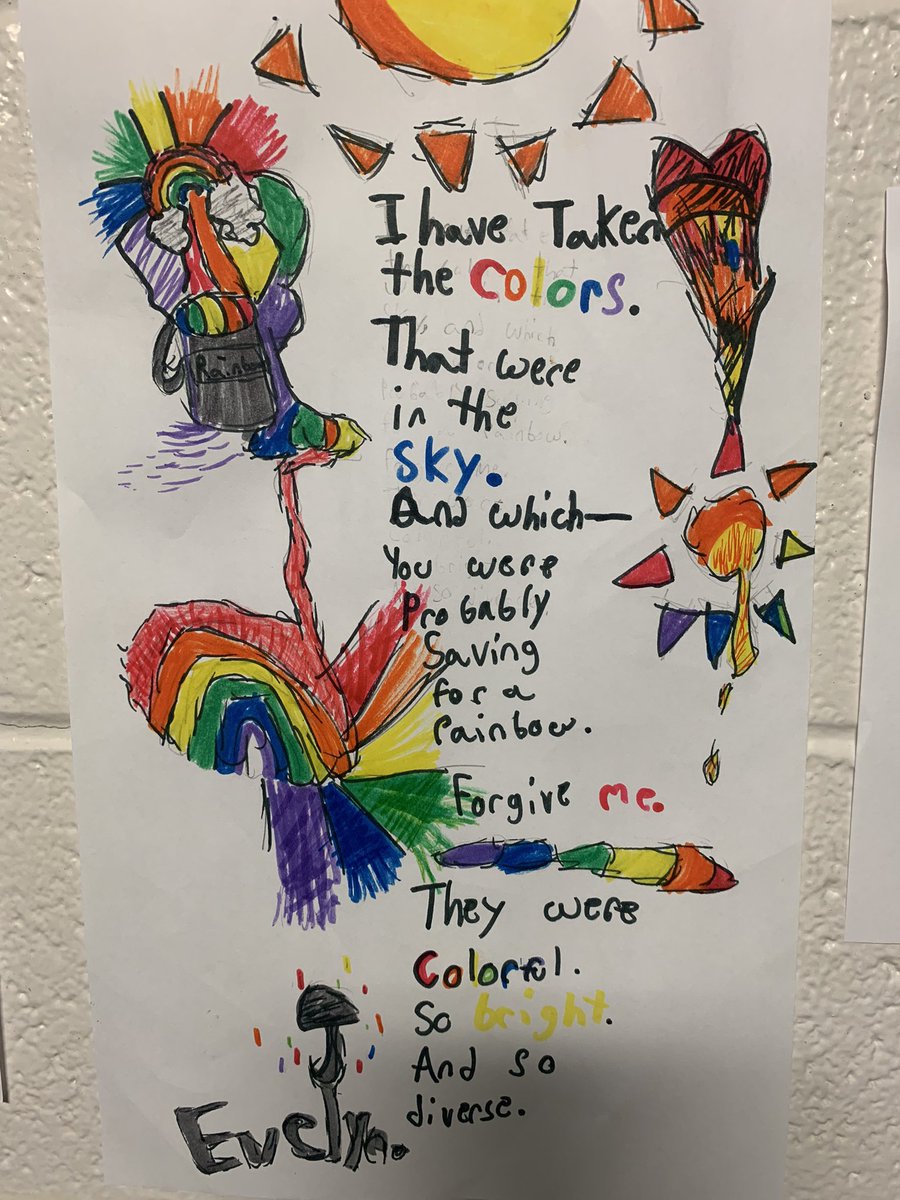 Rainbow
I have Taken
the Colors.
That were
in the
SKY.
And which—
You were
Probably
Saving
for a
rainbow.
Forgive me.
They were
Colorful.
So bright.
And so
diverse.
Evelyn.